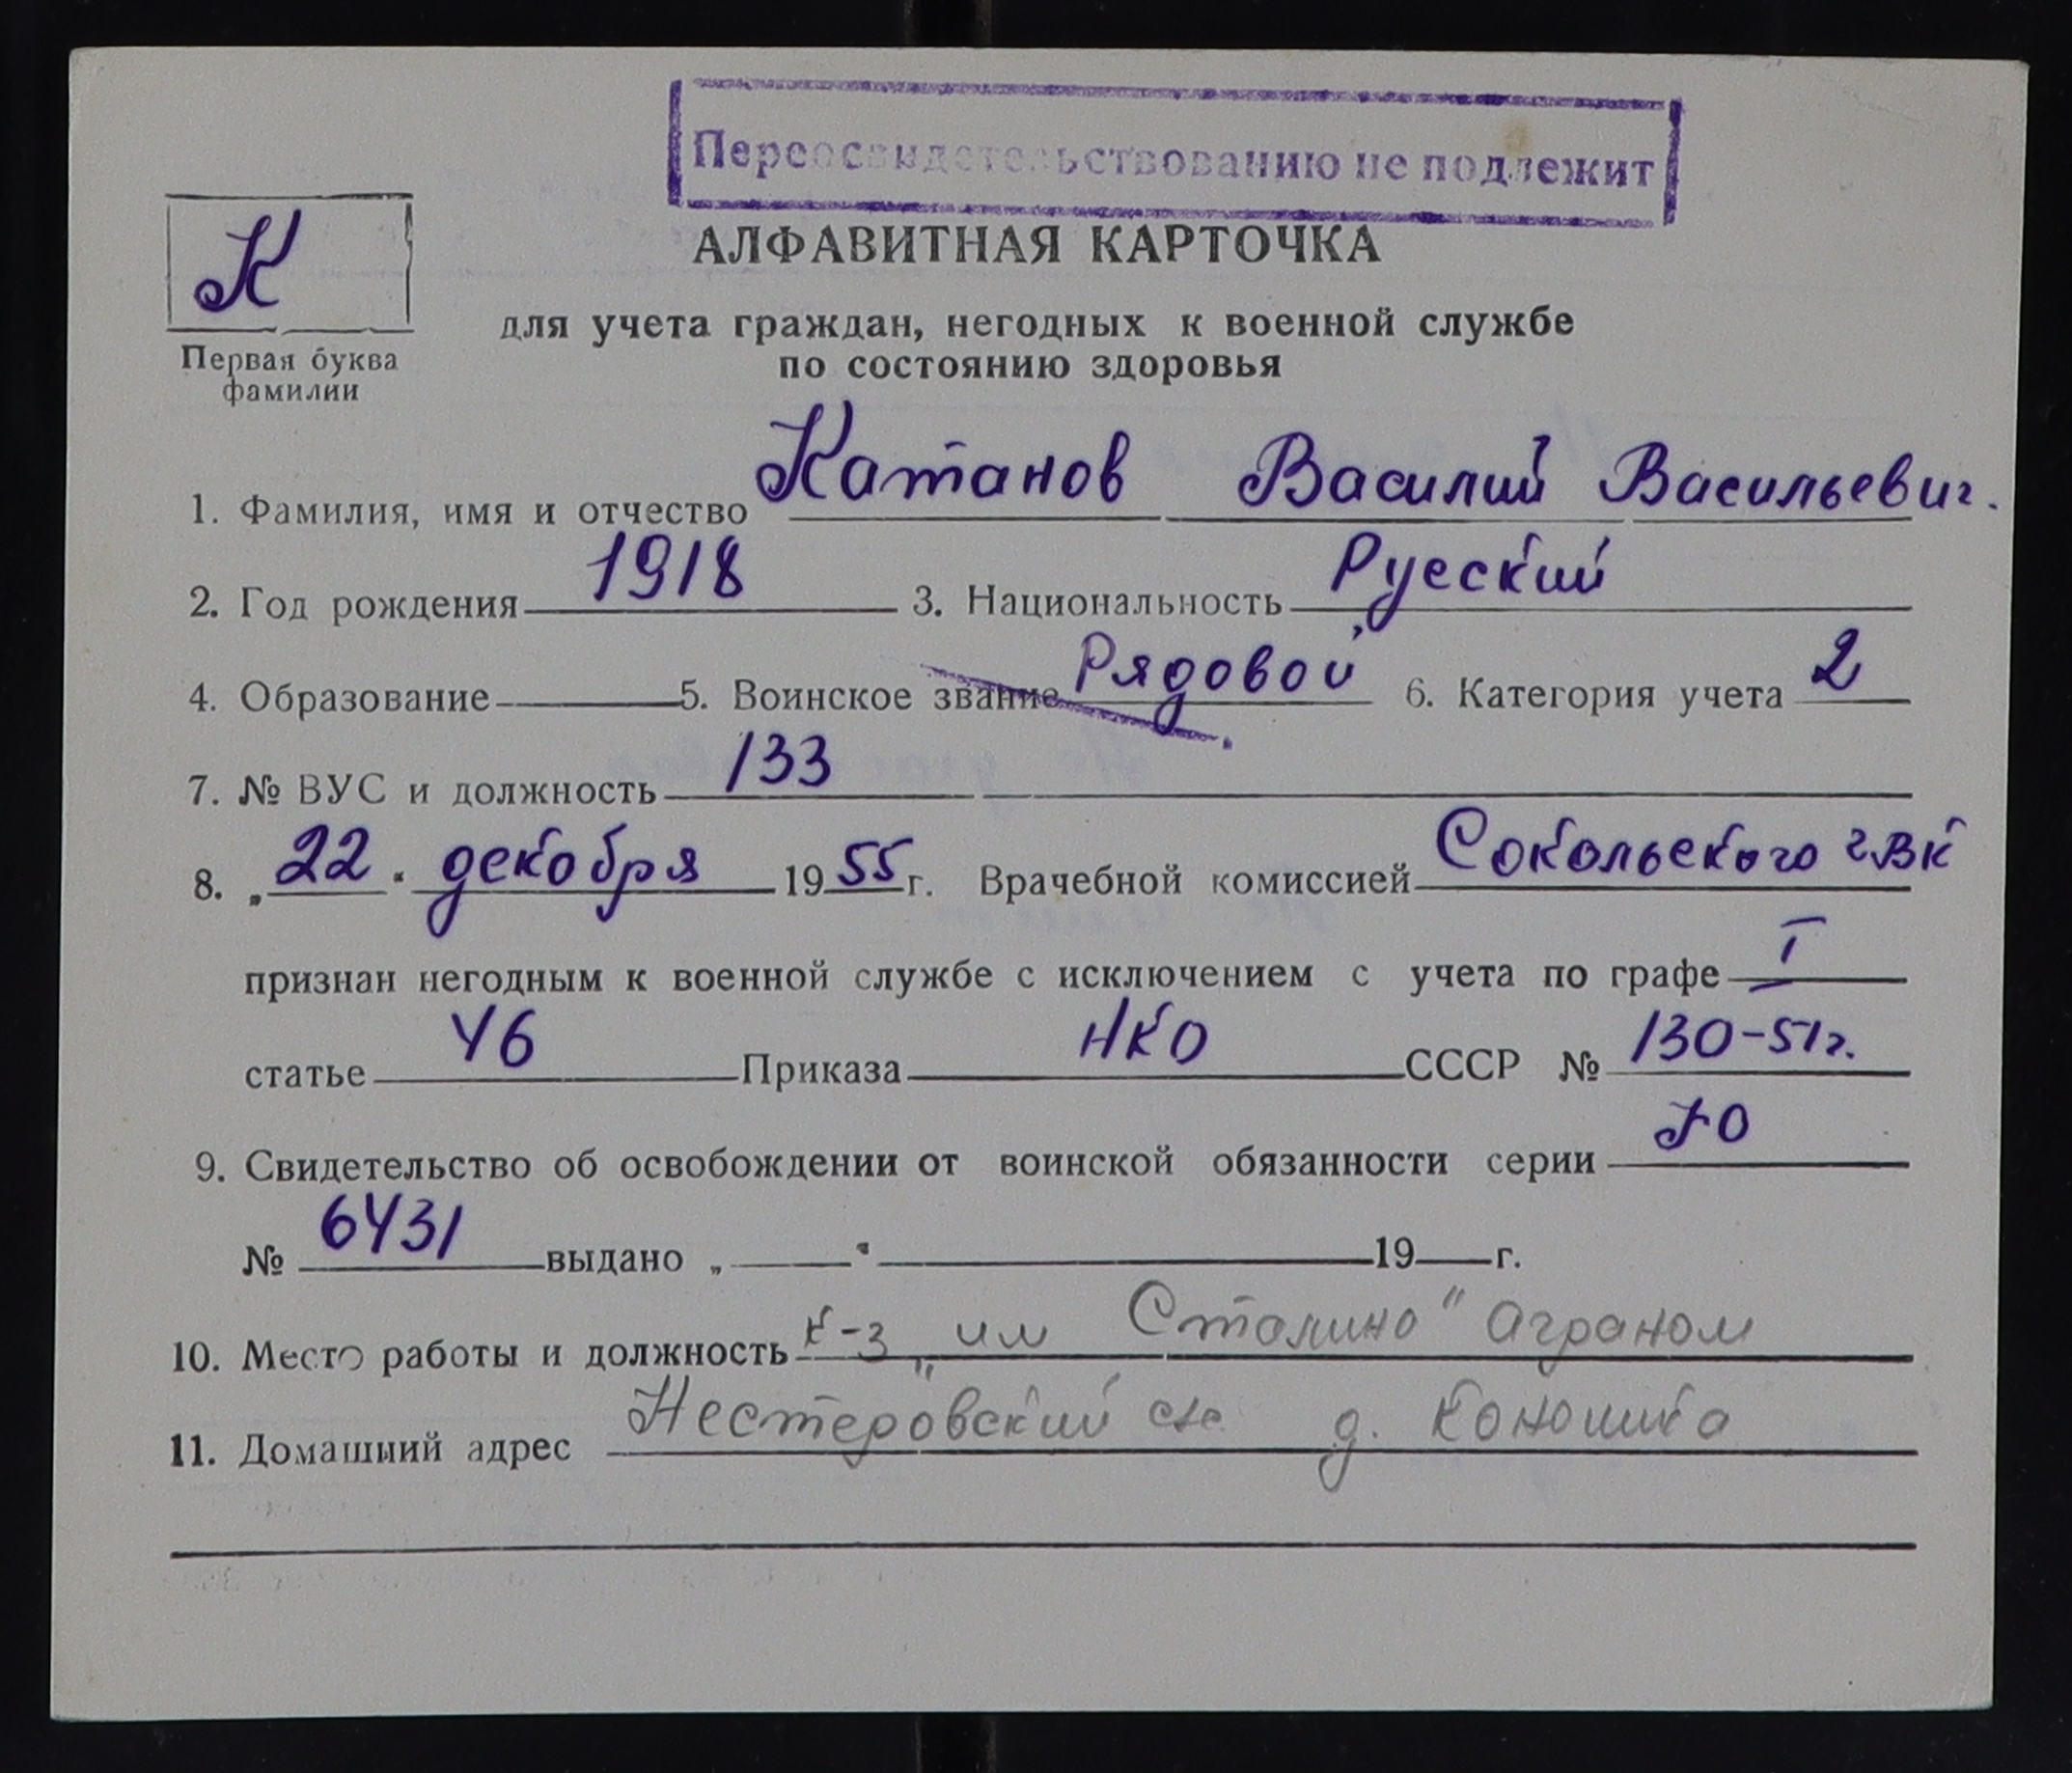 Переосвидетельствованию не подлежит
К
Первая буква
фамилии
АЛФАВИТНАЯ КАРТОЧКА
для учета граждан, негодных к военной службе
по состоянию здоровья
1. Фамилия, имя и отчество Катанов Василий Васильевич.
2. Год рождения 1918 3. Национальность Русский
4. Образование 5. Воинское звание Рядовой 6. Категория учета 2
7. № ВУС и должность 133
8. „22“ декабря 1955 г. Врачебной комиссией Сокольского гвк
признан негодным к военной службе с исключением с учета по графе I
статье 46 Приказа НКО СССР № 130-51г.
9. Свидетельство об освобождении от воинской обязанности серии
№ 6431 выдано „ “ 19 г.
10. Место работы и должность к-з „им Сталино" аграном
11. Домашний адрес Нестеровский д.